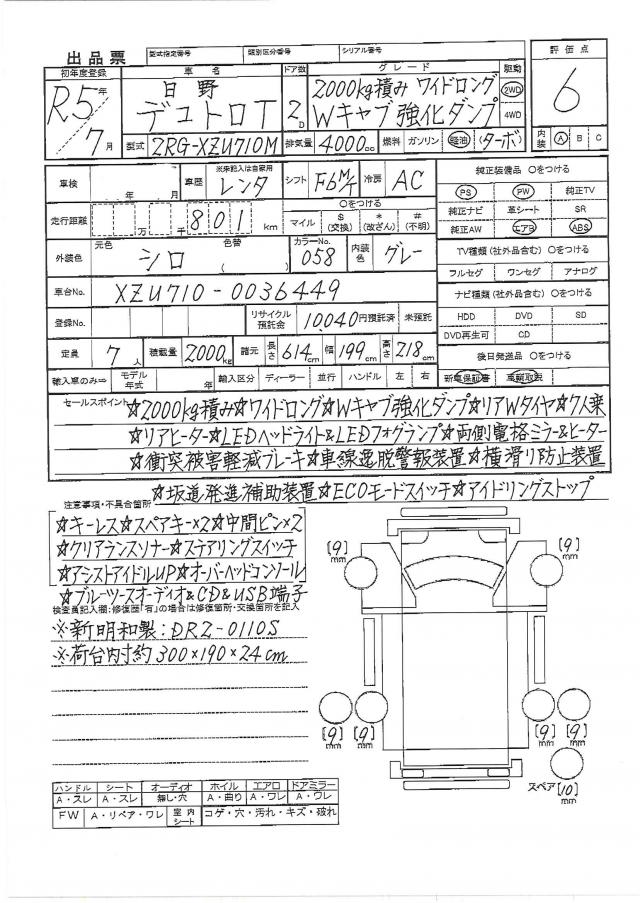 出品票 型式指定番号 類別区分番号 シリアル番号
評価点
初年度登録 車名 ドア数 グレード 駆動
R5年 日野 2000kg積み ワイドロング 2WD
デュトロT 2D Wキャブ強化ダンプ 4WD 6
7月 型式 2RG-XZU710M 排気量 4000cc 燃料 ガソリン 軽油 (ターボ) 内装 A B C
車検 年 月 車歴 ※未記入は自家用 レンタ シフト F6M/T 冷房 AC 純正装備品 ○をつける
PS PW 純正TV
走行距離 万 千 801 km ○をつける マイル $(交換) *(改ざん) #(不明) 純正ナビ 革シート SR
純正AW エアB ABS
外装色 元色 シロ 色替 ( ) カラーNo. 058 内装色 グレー TV種類(社外品含む) ○をつける
フルセグ ワンセグ アナログ
車台No. XZU710-0036449 ナビ種類(社外品含む) ○をつける
登録No. リサイクル預託金 10,040円預託済 未預託 HDD DVD SD
DVD再生可 CD
定員 7人 積載量 2000kg 諸元 長さ 614cm 幅 199cm 高さ 218cm 後日発送品 ○をつける
輸入車のみ⇒ モデル年式 年 輸入区分 ディーラー 並行 ハンドル 左 右 新車保証書 車輌取説
セールスポイント ☆2000kg積み☆ワイドロング☆Wキャブ強化ダンプ☆リアWタイヤ☆7人乗
☆リアヒーター☆LEDヘッドライト&LEDフォグランプ☆両側電格ミラー&ヒーター
☆衝突被害軽減ブレーキ☆車線逸脱警報装置☆横滑り防止装置
☆坂道発進補助装置☆ECOモードスイッチ☆アイドリングストップ
注意事項・不具合箇所
☆キーレス☆スペアキー×2☆中間ピン×2
☆クリアランスソナー☆ステアリングスイッチ
☆アシストアイドルUP☆オーバーヘッドコンソール
☆ブルーツースオーディオ&CD&USB端子
検査員記入欄:修復歴「有」の場合は修復箇所・交換箇所を記入
※新明和製:DR2-0110S
※荷台内寸約300×190×24cm
[9]mm [9]mm
[9]mm [9]mm [9]mm [9]mm
スペア[10]mm
ハンドル シート オーディオ ホイル エアロ ドアミラー
A・スレ A・スレ 無し・穴 A・曲り A・ワレ A・ワレ
FW A・リペア・ワレ 室内シート コゲ・穴・汚れ・キズ・破れ